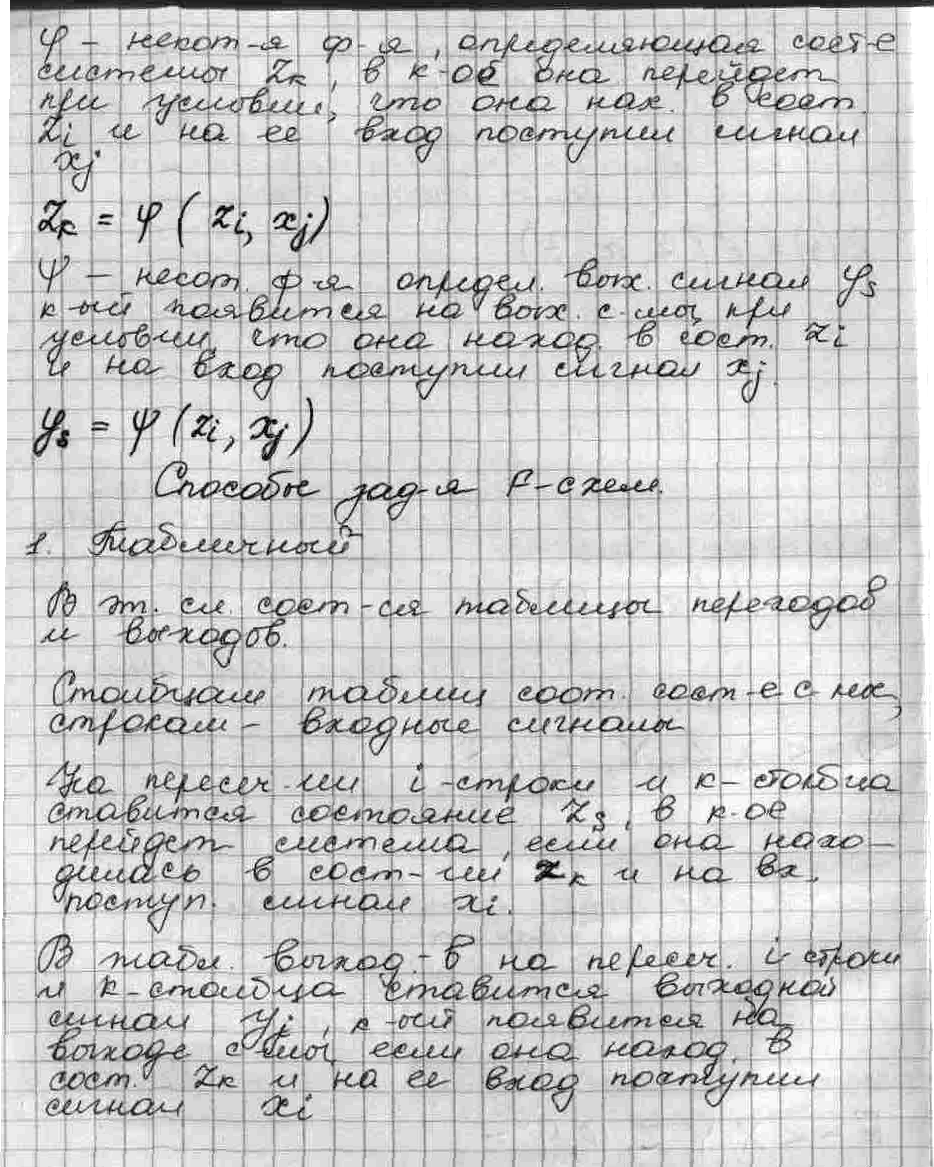 φ – некот-я ф-я, определяющая сост-е
системы Zк, в к-ое она перейдет
при условии, что она нах. в сост.
Zi и на ее вход поступил сигнал
xj
Zк = φ ( zi, xj)
Ψ – некот. ф-я определ. вых. сигнал ys
к-ый появится на вых. с-мы, при
условии, что она наход. в сост. zi
и на вход поступил сигнал xj.
ys = ψ (zi, xj)
Способы зад-я F-схем.
1. Табличный
В эт. сл. сост-ся таблицы переходов
и выходов.
Столбцам таблиц соот. сост-е с-мы,
строкам – входные сигналы
На пересеч-ии i-строки и к-столбца
ставится состояние Zs, в к-ое
перейдет система, если она нахо-
дилась в сост-ии zк и на вх.
поступ. сигнал xi.
В табл. выход-в на пересеч. i-строки
и к-столбца ставится выходной
сигнал yj, к-ый появится на
выходе с-мы, если она наход. в
сост. Zк и на ее вход поступил
сигнал xi